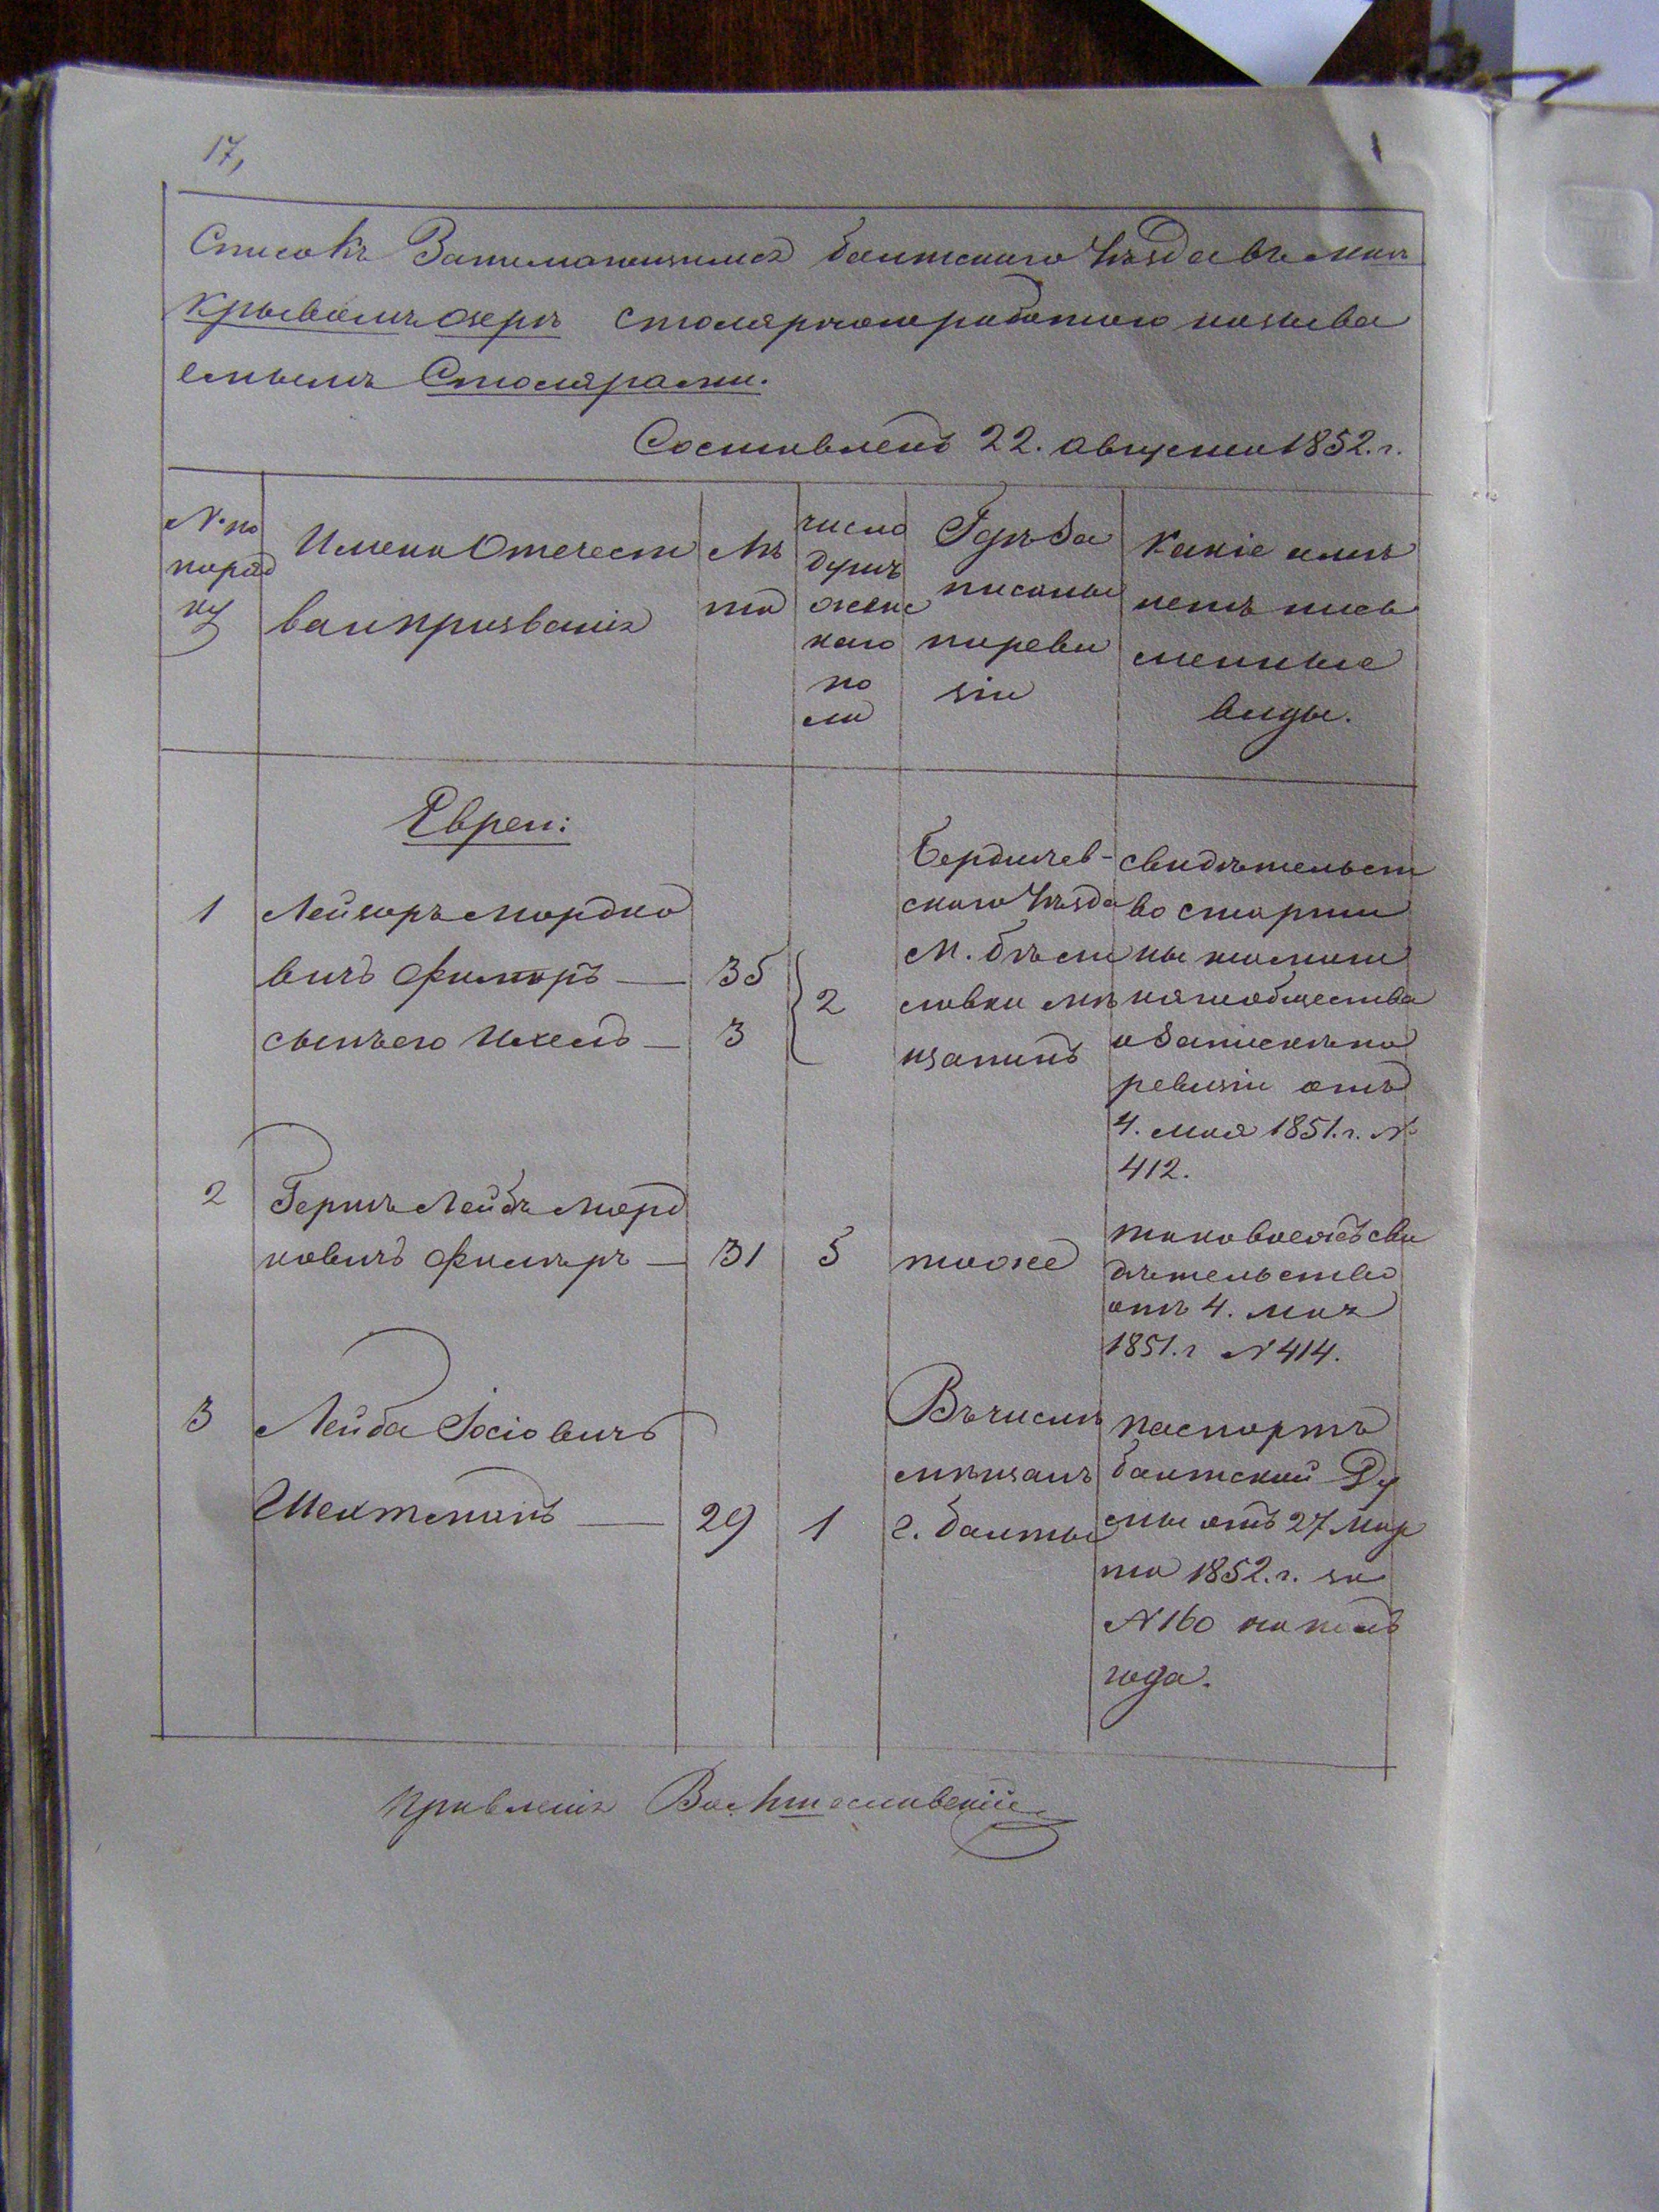 17,
Списокъ Занимающимся балтскаго уѣзда въ мѣст
Кривомъ озерѣ столярною работою называ
емымъ Столярами.
Составленъ 22. августа 1852. г.
N. по
поряд
ку
Имена Отчест
ва и прозванія
Лѣ
та
число
душъ
женс
каго
по
ла
Гдѣ за
писаны
по реви
зіи
Какіе имѣ
ютъ пись
менные
виды.
Евреи:
1 Лейзоръ Мордко
вичъ — 35
сынъ его — 3
2
Бердичев-
скаго уѣзда
м.
мѣ
щанинъ
свидѣтельст
во старши
ны
общества
о запискѣ по
ревизіи отъ
4. мая 1851. г. N
412.
2 Гершъ Лейбъ Морд
ковичъ — 31 5 тоже
таковое же сви
дѣтельство
отъ 4. мая
1851. г N 414.
3 Лейба Іосіовичъ
Шехтманъ — 29 1
Въ числѣ
мѣщанъ
г. балты
паспортъ
балтской Ду
мы отъ 27 Мар
та 1852. г. за
N 160 на полъ
года.